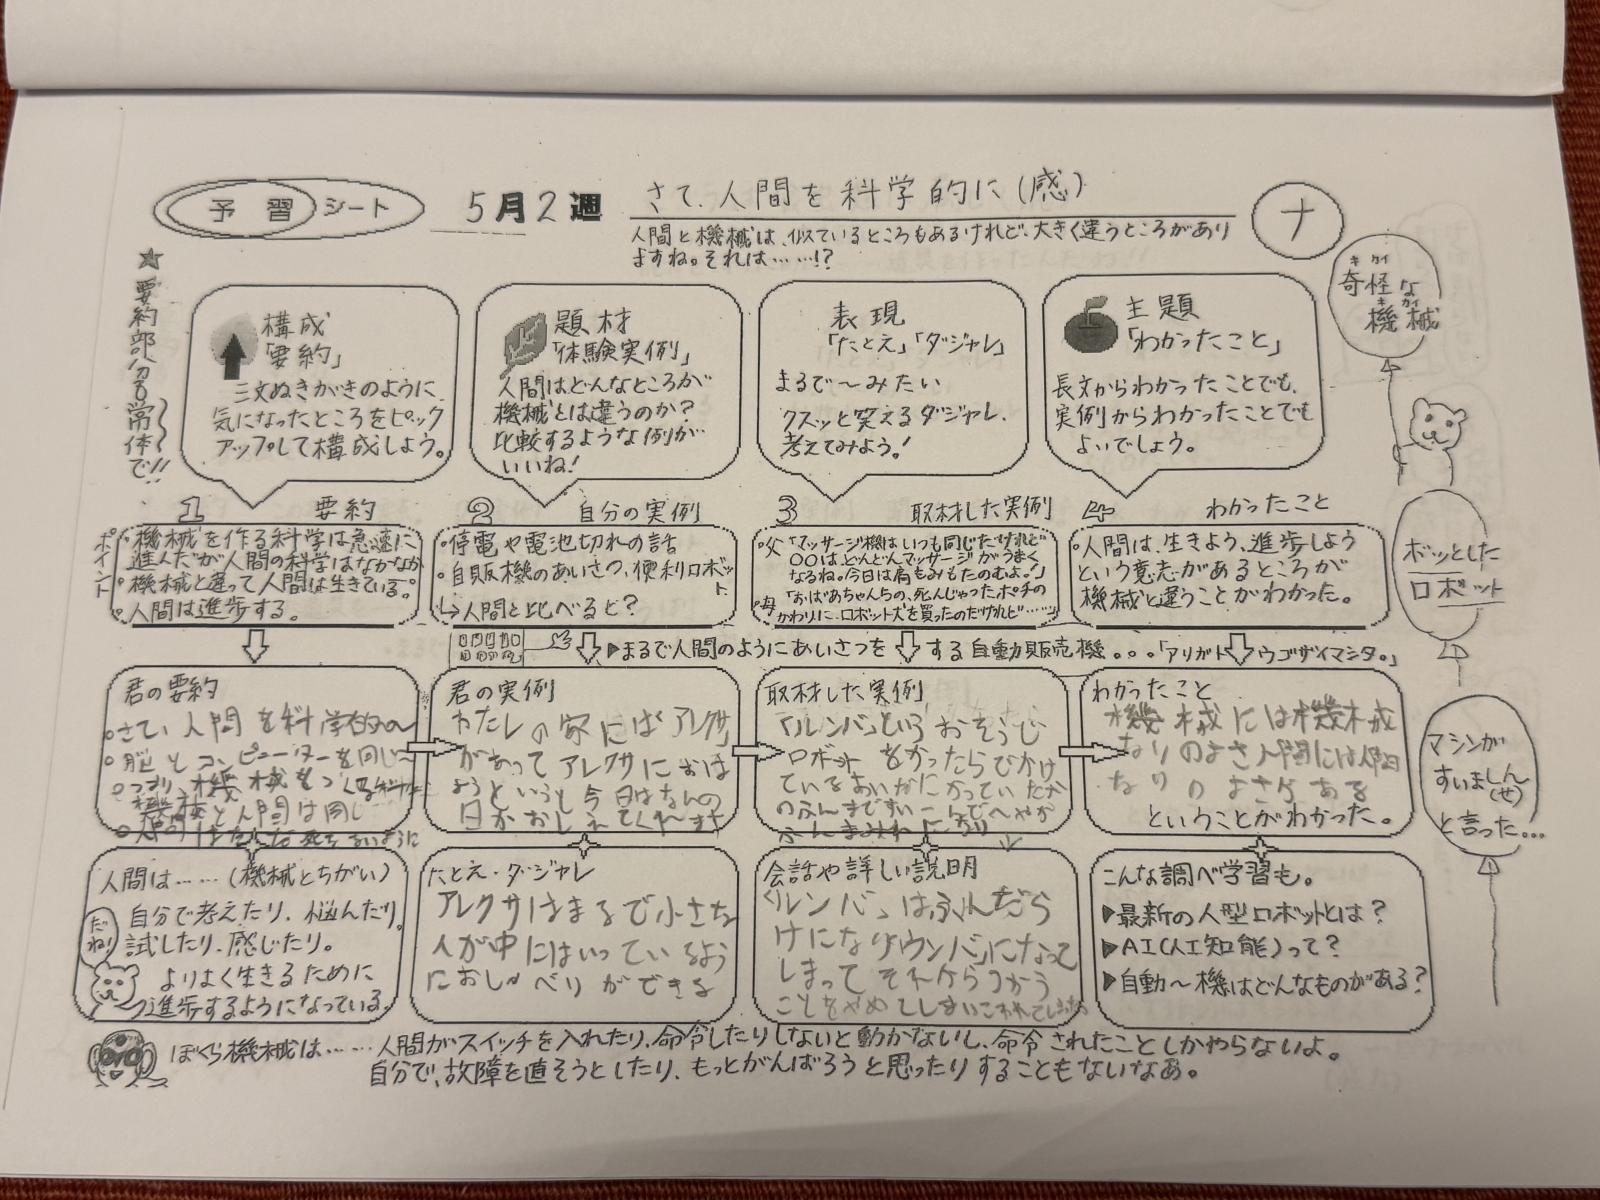 予習シート
5月2週
さて、人間を科学的に(感)
ナ
人間と機械は、似ているところもあるけれど、大きく違うところがあり
ますね。それは……!?
★要約部分は常体で!!
構成
「要約」
三文ぬきがきのように、
気になったところをピック
アップして構成しよう。
題材
「体験実例」
人間はどんなところが
機械とは違うのか?
比較するような例が
いいね!
表現
「たとえ」「ダジャレ」
まるで〜みたい
クスッと笑えるダジャレ、
考えてみよう!
主題
「わかったこと」
長文からわかったことでも、
実例からわかったことでも
よいでしょう。
キカイ
奇怪な
キカイ
機械
1 要約
ポイント
・機械を作る科学は急速に
進んだが人間の科学はなかなか
・機械と違って人間は生きている。
・人間は進歩する。
2 自分の実例
・停電や電池切れの話
・自販機のあいさつ、便利ロボット
↳人間と比べると?
3 取材した実例
・父「マッサージ機はいつも同じだけれど
〇〇はどんどんマッサージがうまく
なるね。今日は肩もみもたのむよ!」
・母「おばあちゃんちの、死んじゃったポチの
かわりに、ロボット犬を買ったのだけれど……」
4 わかったこと
・人間は、生きよう、進歩しよう
という意志があるところが
機械と違うことがわかった。
ボッとした
ロボット
▶まるで人間のようにあいさつをする自動販売機。。。「アリガトウゴザイマシタ。」
君の要約
・さて、人間を科学的〜
・脳とコンピューターを同じ〜
・つまり、機械をつくる科学
機械と人間は同じ
・人間は
君の実例
わたしの家には「アレクサ」
があって アレクサにおは
ようというと今日はなんの
日かおしえてくれます
取材した実例
「ルンバ」という おそうじ
ロボット をかったらでかけ
ている
のふんまですいこんでへやが
ふんまみれになり
わかったこと
機械には機械
なりのよさ人間には人間
なりのよさがある
ということがわかった。
マシンが
すいましん
(せ)
と言った…
人間は……(機械とちがい)
自分で考えたり、悩んだり、
試したり、感じたり。
よりよく生きるために
進歩するようになっている。
だね!
たとえ・ダジャレ
アレクサはまるで小さな
人が中にはいっているよう
におしゃべりができる
会話や詳しい説明
「ルンバ」はふんだら
けになり「ウンバ」になって
しまって それからつかう
ことをやめてしまいこわれてしまった
こんな調べ学習も。
▶最新の人型ロボットとは?
▶AI(人工知能)って?
▶自動〜機はどんなものがある?
ぼくら機械は……人間がスイッチを入れたり、命令したりしないと動かないし、命令されたことしかやらないよ。
自分で、故障を直そうとしたり、もっとがんばろうと思ったりすることもないなあ。